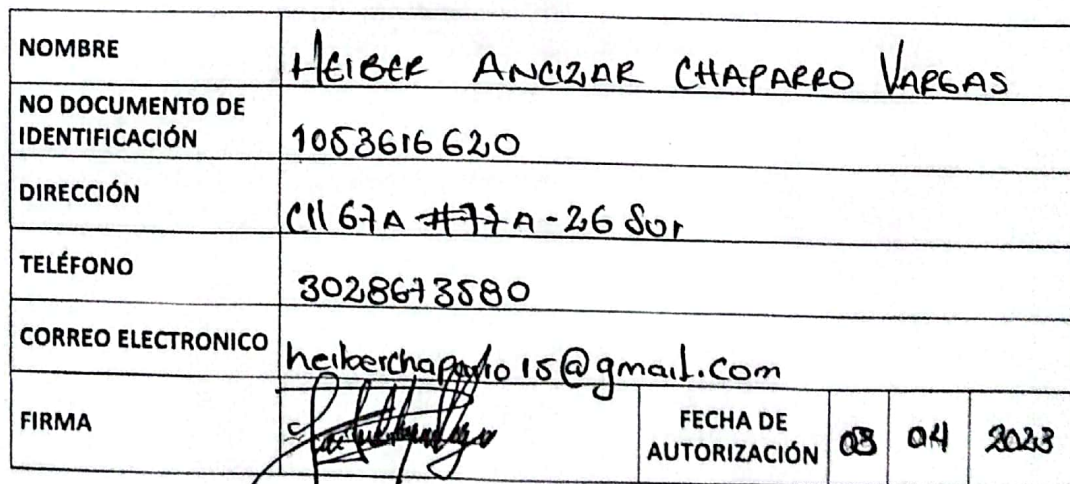 NOMBRE HEIBER ANCIZAR CHAPARRO VARGAS
NO DOCUMENTO DE
IDENTIFICACIÓN 1053616620
DIRECCIÓN Cll 67A #77A-26 Sur
TELÉFONO 3028673580
CORREO ELECTRONICO heiberchaparro15@gmail.com
FIRMA
FECHA DE
AUTORIZACIÓN 03 04 2023